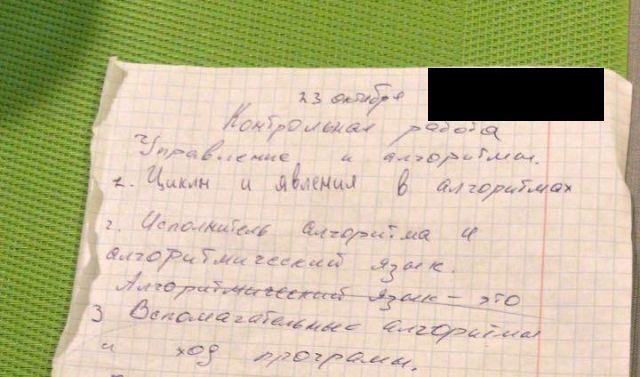 23 октября
Контрольная работа
Управление и алгоритмы.
1. Циклы и явления в алгоритмах
2. Исполнитель алгоритма и
алгоритмический язык.
Алгоритмический язык – это
3 Вспомагательные алгоритмы
и ход программы.